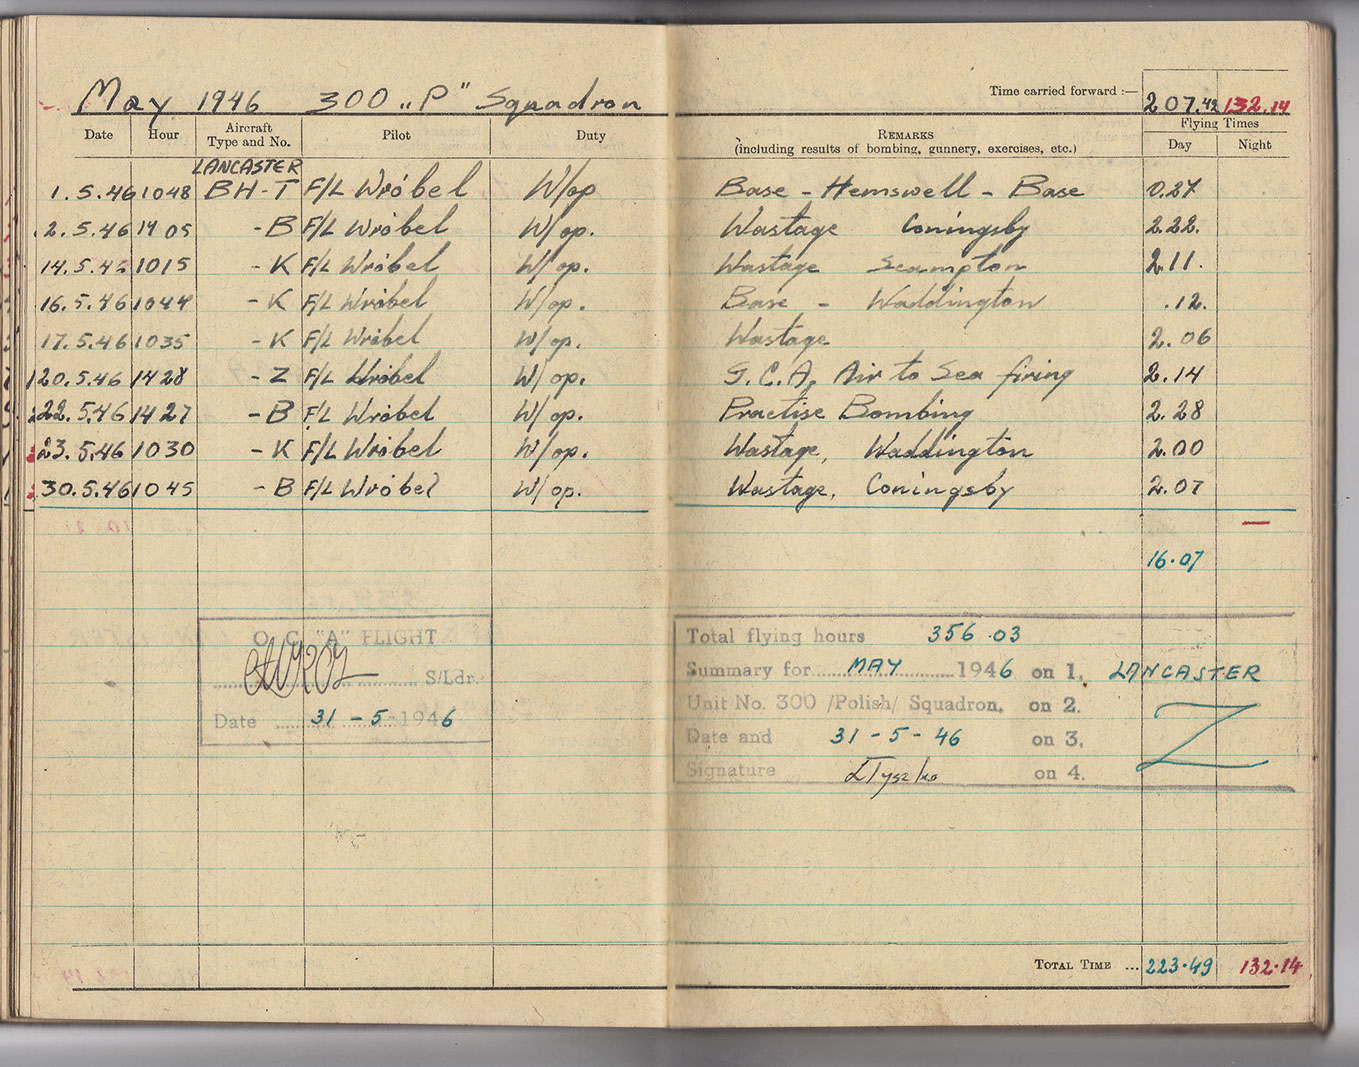 May 1946 300 „P" Squadron
Time carried forward :— 207.42 132.14
Date Hour Aircraft Type and No. Pilot Duty REMARKS (including results of bombing, gunnery, exercises, etc.) Flying Times Day Night
LANCASTER
1.5.46 1048 BH-T F/L Wróbel W/op Base - Hemswell - Base 0.27
2.5.46 1405 -B F/L Wróbel W/op. Wastage Coningsby 2.22.
14.5.46 1015 -K F/L Wróbel W/op. Wastage Scampton 2.11.
16.5.46 1044 -K F/L Wróbel W/op. Base - Waddington .12.
17.5.46 1035 -K F/L Wróbel W/op. Wastage 2.06
20.5.46 1428 -Z F/L Wróbel W/op. G.C.A. Air to Sea firing 2.14
22.5.46 1427 -B F/L Wróbel W/op. Practise Bombing 2.28
23.5.46 1030 -K F/L Wróbel W/op. Wastage, Waddington 2.00
30.5.46 1045 -B F/L Wróbel W/op. Wastage, Coningsby 2.07
—
16.07
O. C. "A" FLIGHT
S/Ldr.
Date 31-5-1946
Total flying hours 356.03
Summary for MAY 1946 on 1. LANCASTER
Unit No. 300 /Polish/ Squadron. on 2.
Date and 31-5-46 on 3.
Signature ŁTyszko on 4.
TOTAL TIME ... 223.49 132.14